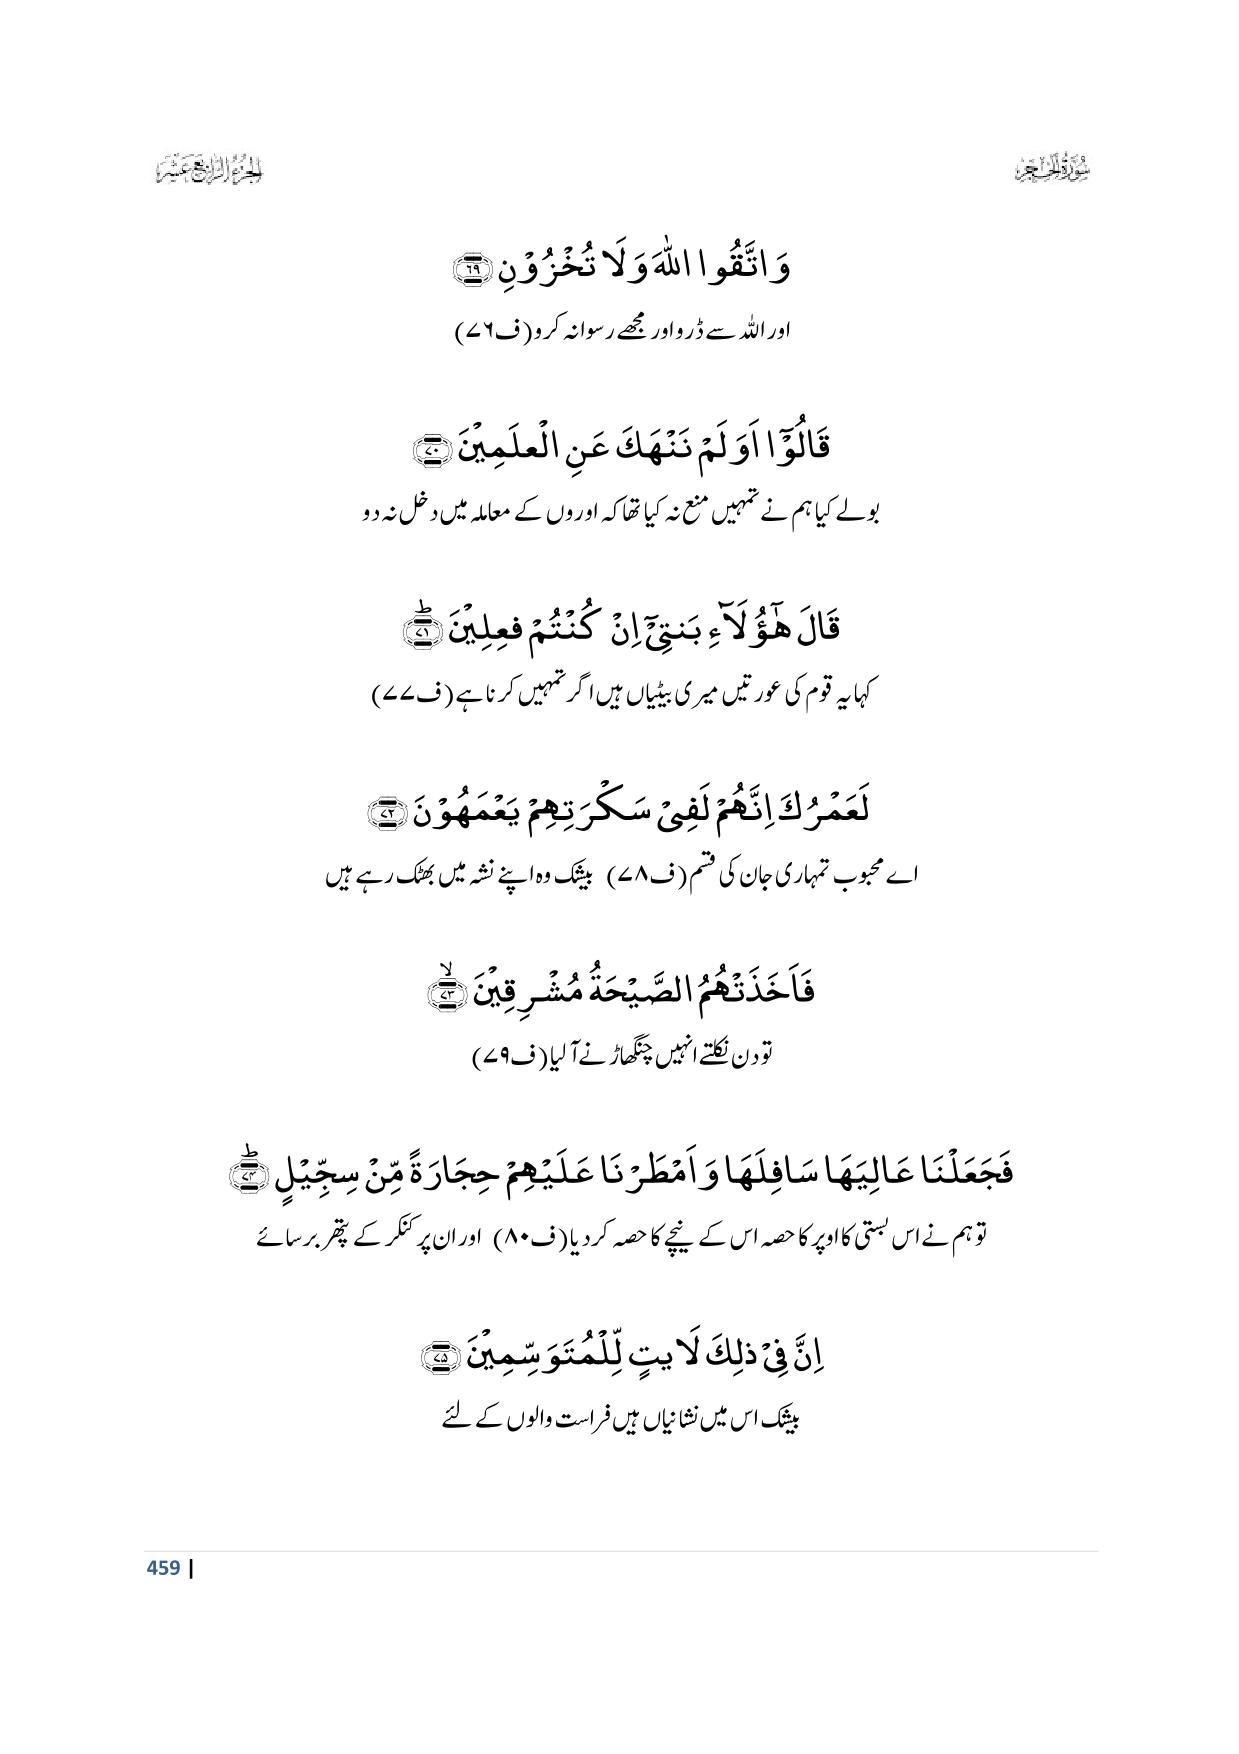 سُوْرَةُ الحِجْر
الجزء الرابع عشر
وَ اتَّقُوا اللّٰهَ وَ لَا تُخْزُوْنِ ﴿۶۹﴾
اور اللہ سے ڈرو اور مجھے رسوا نہ کرو(ف۷۶)
قَالُوْۤا اَوَ لَمْ نَنْهَكَ عَنِ الْعٰلَمِیْنَ ﴿۷۰﴾
بولے کیا ہم نے تمہیں منع نہ کیا تھا کہ اوروں کے معاملہ میں دخل نہ دو
قَالَ هٰۤؤُلَآءِ بَنٰتِیْۤ اِنْ كُنْتُمْ فٰعِلِیْنَ ﴿ؕ۷۱﴾
کہا یہ قوم کی عورتیں میری بیٹیاں ہیں اگر تمہیں کرنا ہے(ف۷۷)
لَعَمْرُكَ اِنَّهُمْ لَفِیْ سَكْرَتِهِمْ یَعْمَهُوْنَ ﴿۷۲﴾
اے محبوب تمہاری جان کی قسم(ف۷۸) بیشک وہ اپنے نشہ میں بھٹک رہے ہیں
فَاَخَذَتْهُمُ الصَّیْحَةُ مُشْرِقِیْنَ ﴿ۙ۷۳﴾
تو دن نکلتے انہیں چنگھاڑ نے آ لیا(ف۷۹)
فَجَعَلْنَا عَالِیَهَا سَافِلَهَا وَ اَمْطَرْنَا عَلَیْهِمْ حِجَارَةً مِّنْ سِجِّیْلٍ ﴿ؕ۷۴﴾
تو ہم نے اس بستی کا اوپر کا حصہ اس کے نیچے کا حصہ کر دیا(ف۸۰) اور ان پر کنکر کے پتھر برسائے
اِنَّ فِیْ ذٰلِكَ لَاٰیٰتٍ لِّلْمُتَوَسِّمِیْنَ ﴿۷۵﴾
بیشک اس میں نشانیاں ہیں فراست والوں کے لئے
459 |